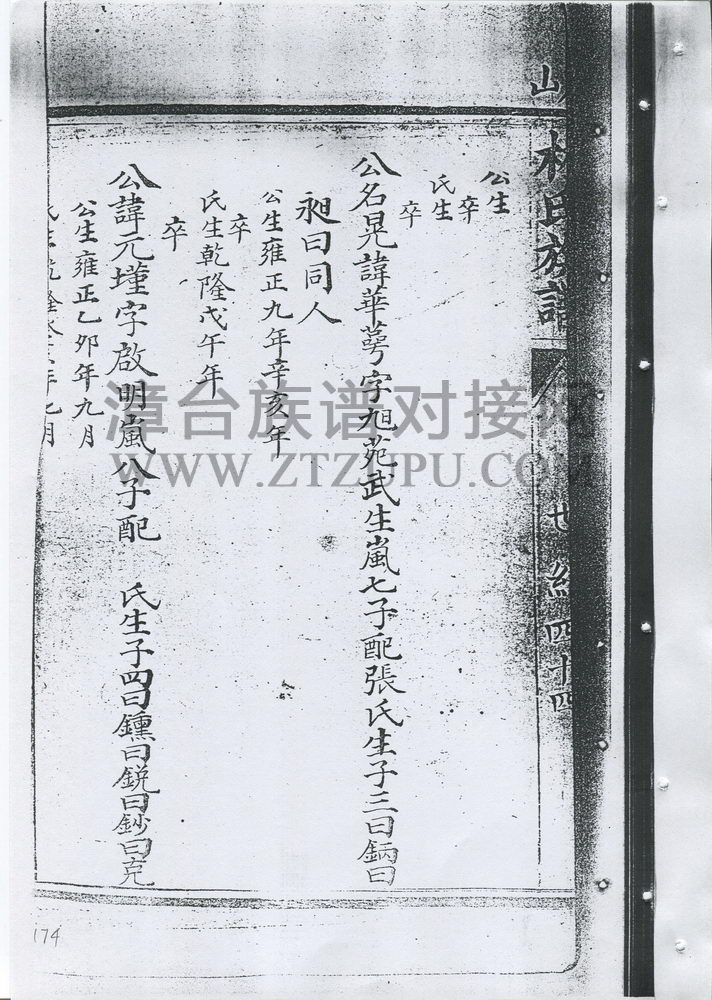 山 林氏族譜
世紀四十四
公生
卒
氏生
卒
公名晃諱華萼字旭苑武生嵐七子配張氏生子三曰鈵曰
昶曰同人
公生雍正九年辛亥年
卒
氏生乾隆戊午年
卒
公諱元墐字啟明嵐八子配 氏生子四曰鑂曰銳曰鈔曰克
公生雍正乙卯年九月
氏生乾隆 年 月
漳台族谱对接网
WWW.ZTZUPU.COM
174